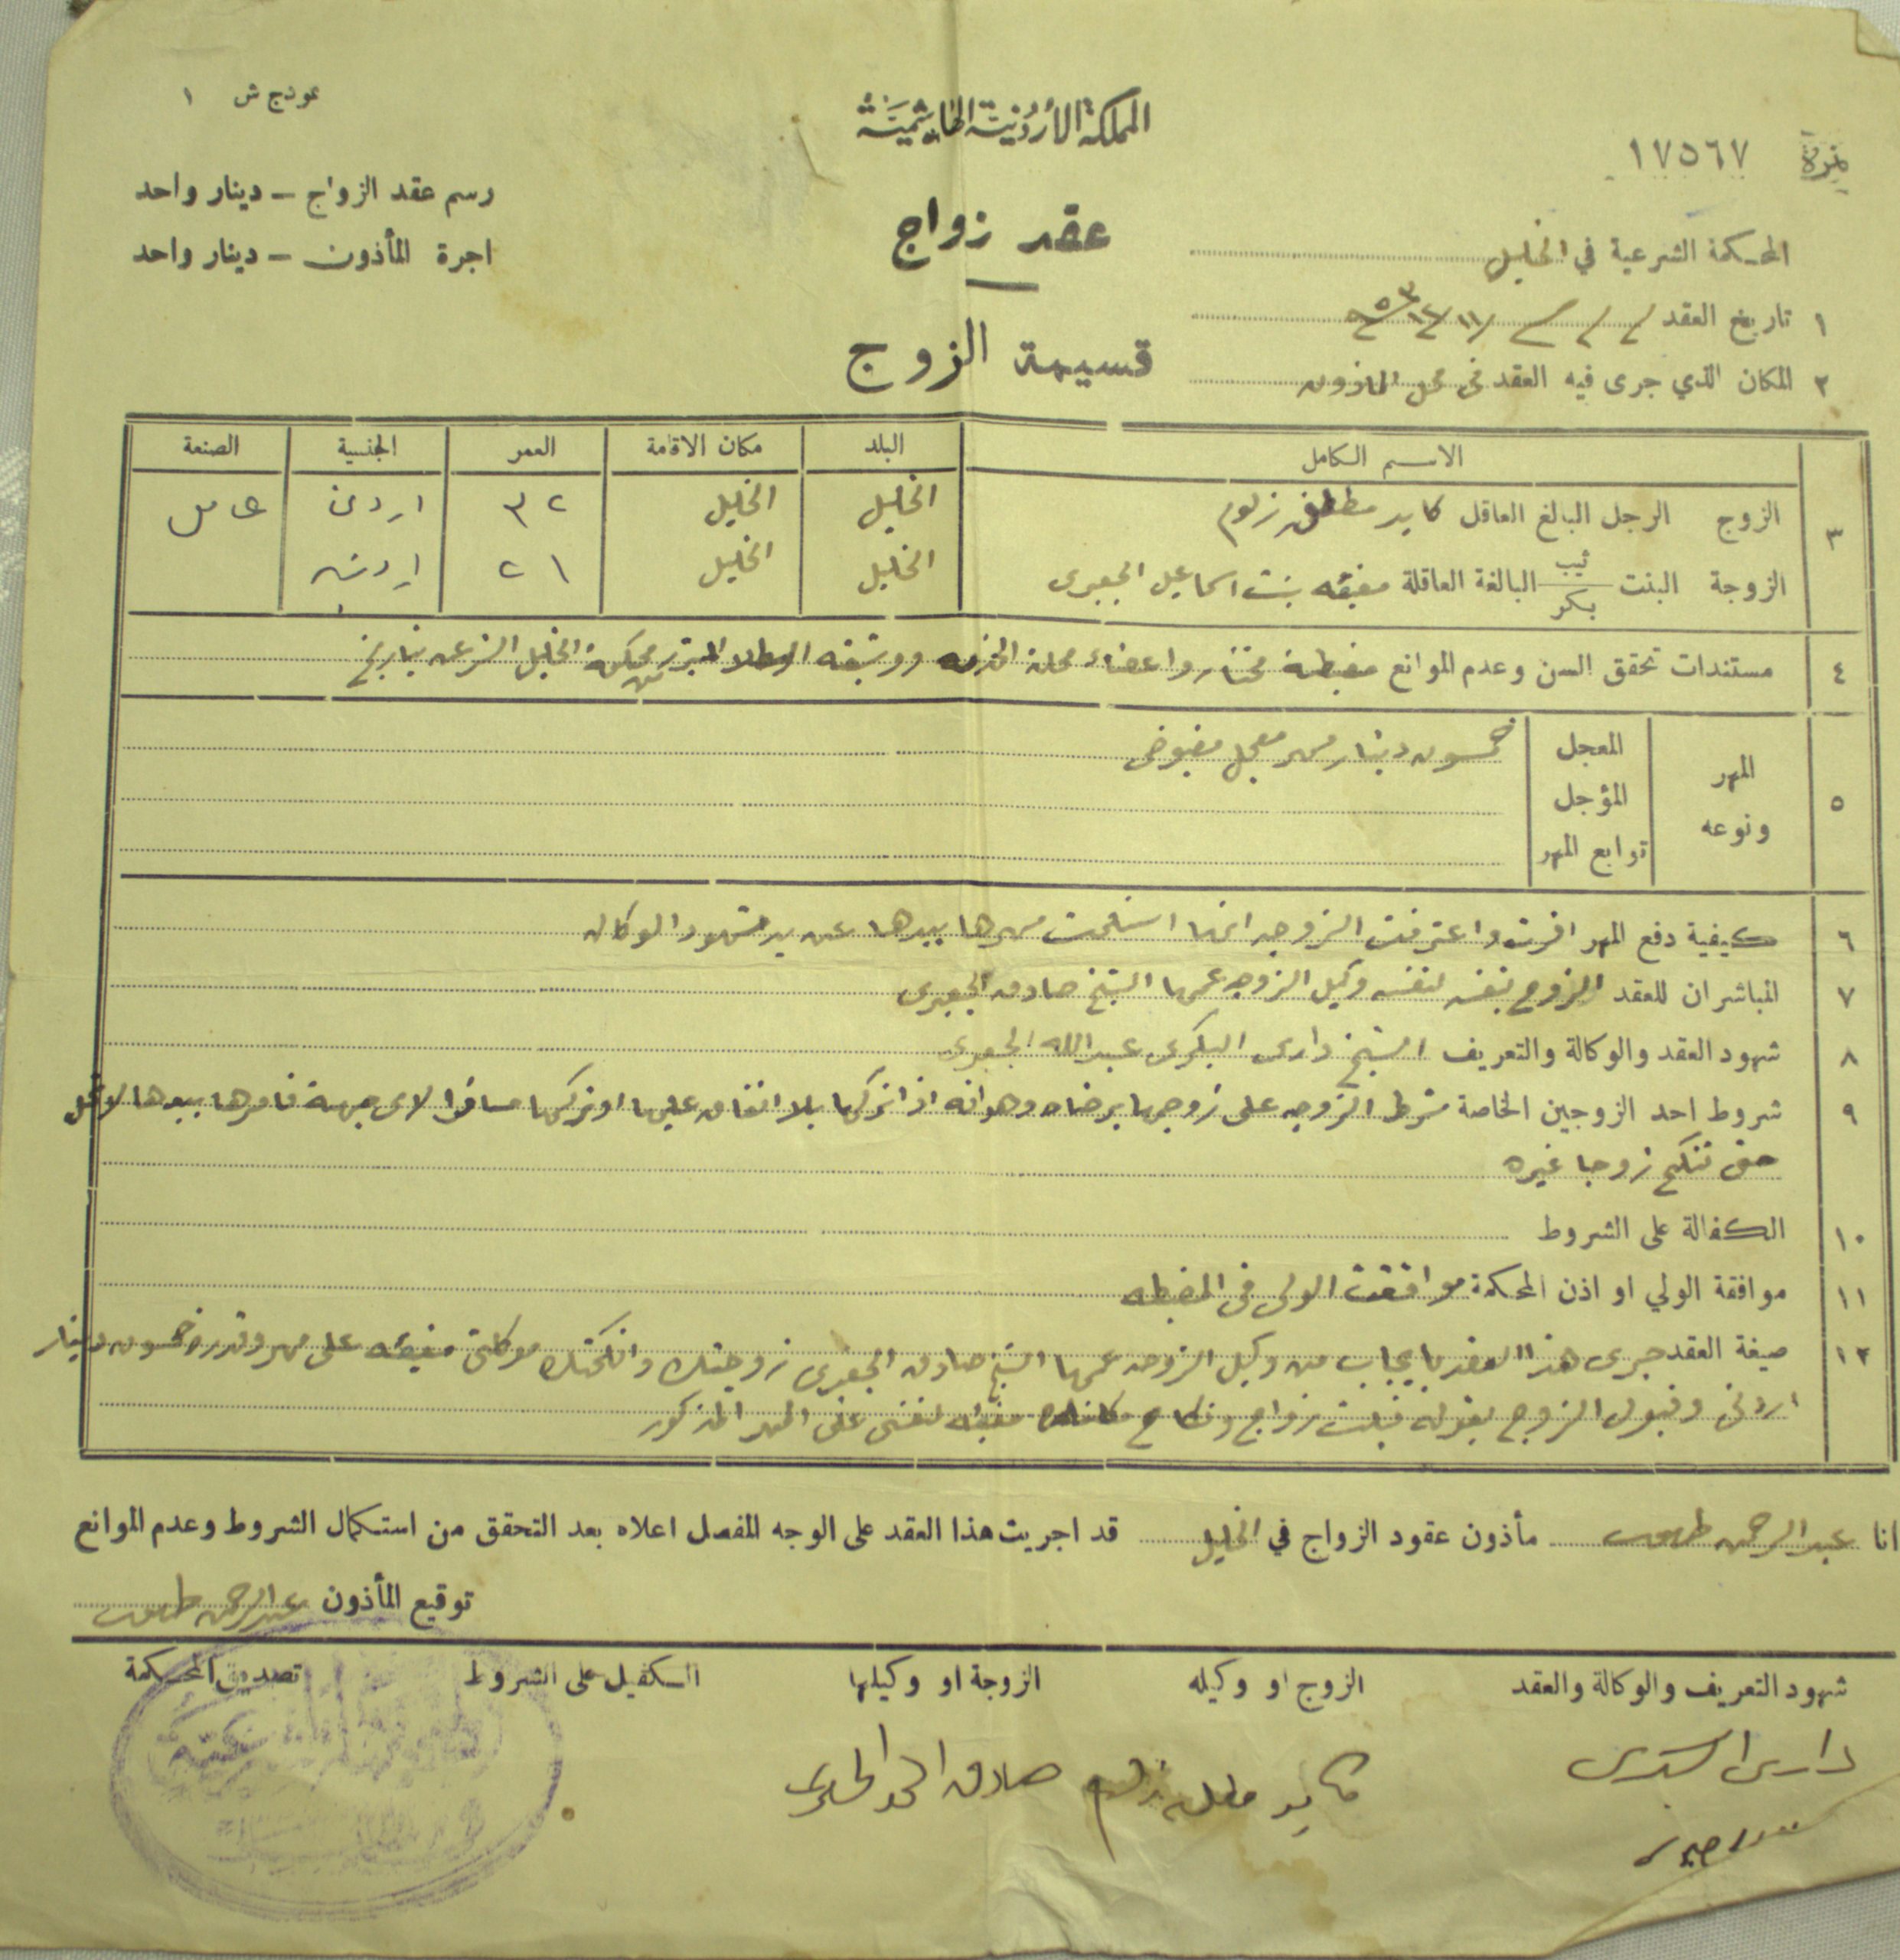 نمرة ١٧٥٦٧
المملكة الأردنية الهاشمية
نموذج ش ١
عقد زواج
رسم عقد الزواج – دينار واحد
اجرة المأذون – دينار واحد
المحكمة الشرعية في الخليل
١ تاريخ العقد
٢ المكان الذي جرى فيه العقد في محل المأذون
قسيمة الزوج
الاسم الكامل البلد مكان الاقامة العمر الجنسية الصنعة
٣ الزوج الرجل البالغ العاقل كايد مطلق زلوم الخليل الخليل ٣٢ اردني عامل
الزوجة البنت ثيب بكر البالغة العاقلة بنت اسماعيل الجعبري الخليل الخليل ٢١ اردنيه
٤ مستندات تحقق السن وعدم الموانع مضبطة مختار واعضاء محلة ووثيقة محكمة الخليل الشرعيه بتاريخ
٥ المهر ونوعه
المعجل خمسون دينار مهر معجل مقبوض
المؤجل
توابع المهر
٦ كيفية دفع المهر اقرت واعترفت الزوجه انها استلمت مهرها بيدها عن يد شهود الوكاله
٧ المباشران للعقد الزوج بنفسه لنفسه وكيل الزوجه عمها الشيخ صادق الجعبري
٨ شهود العقد والوكالة والتعريف الشيخ داري البكري عبد الله الجعبري
٩ شروط احد الزوجين الخاصة شرط الزوجه على زوجها برضاه وهو انه اذا تركها بلا انفاق عليها او تركها مسافرا لاى جهة فامرها بيدها
حتى تنكح زوجا غيره
١٠ الكفالة على الشروط
١١ موافقة الولي او اذن المحكمة موافقة الولي في المضبطه
١٢ صيغة العقد جرى هذا العقد بايجاب من وكيل الزوجه عمها الشيخ صادق الجعبري زوجتك وانكحتك موكلتي على مهر وقدره خمسون دينار
اردني وقبول الزوج بقوله قبلت زواج ونكاح لنفسي على المهر المذكور
انا عبد الرحمن طهبوب مأذون عقود الزواج في الخليل قد اجريت هذا العقد على الوجه المفصل اعلاه بعد التحقق من استكمال الشروط وعدم الموانع
توقيع المأذون عبد الرحمن طهبوب
شهود التعريف والوكالة والعقد الزوج او وكيله الزوجة او وكيلها الكفيل على الشروط تصديق المحكمة
داري البكري كايد مطلق زلوم صادق